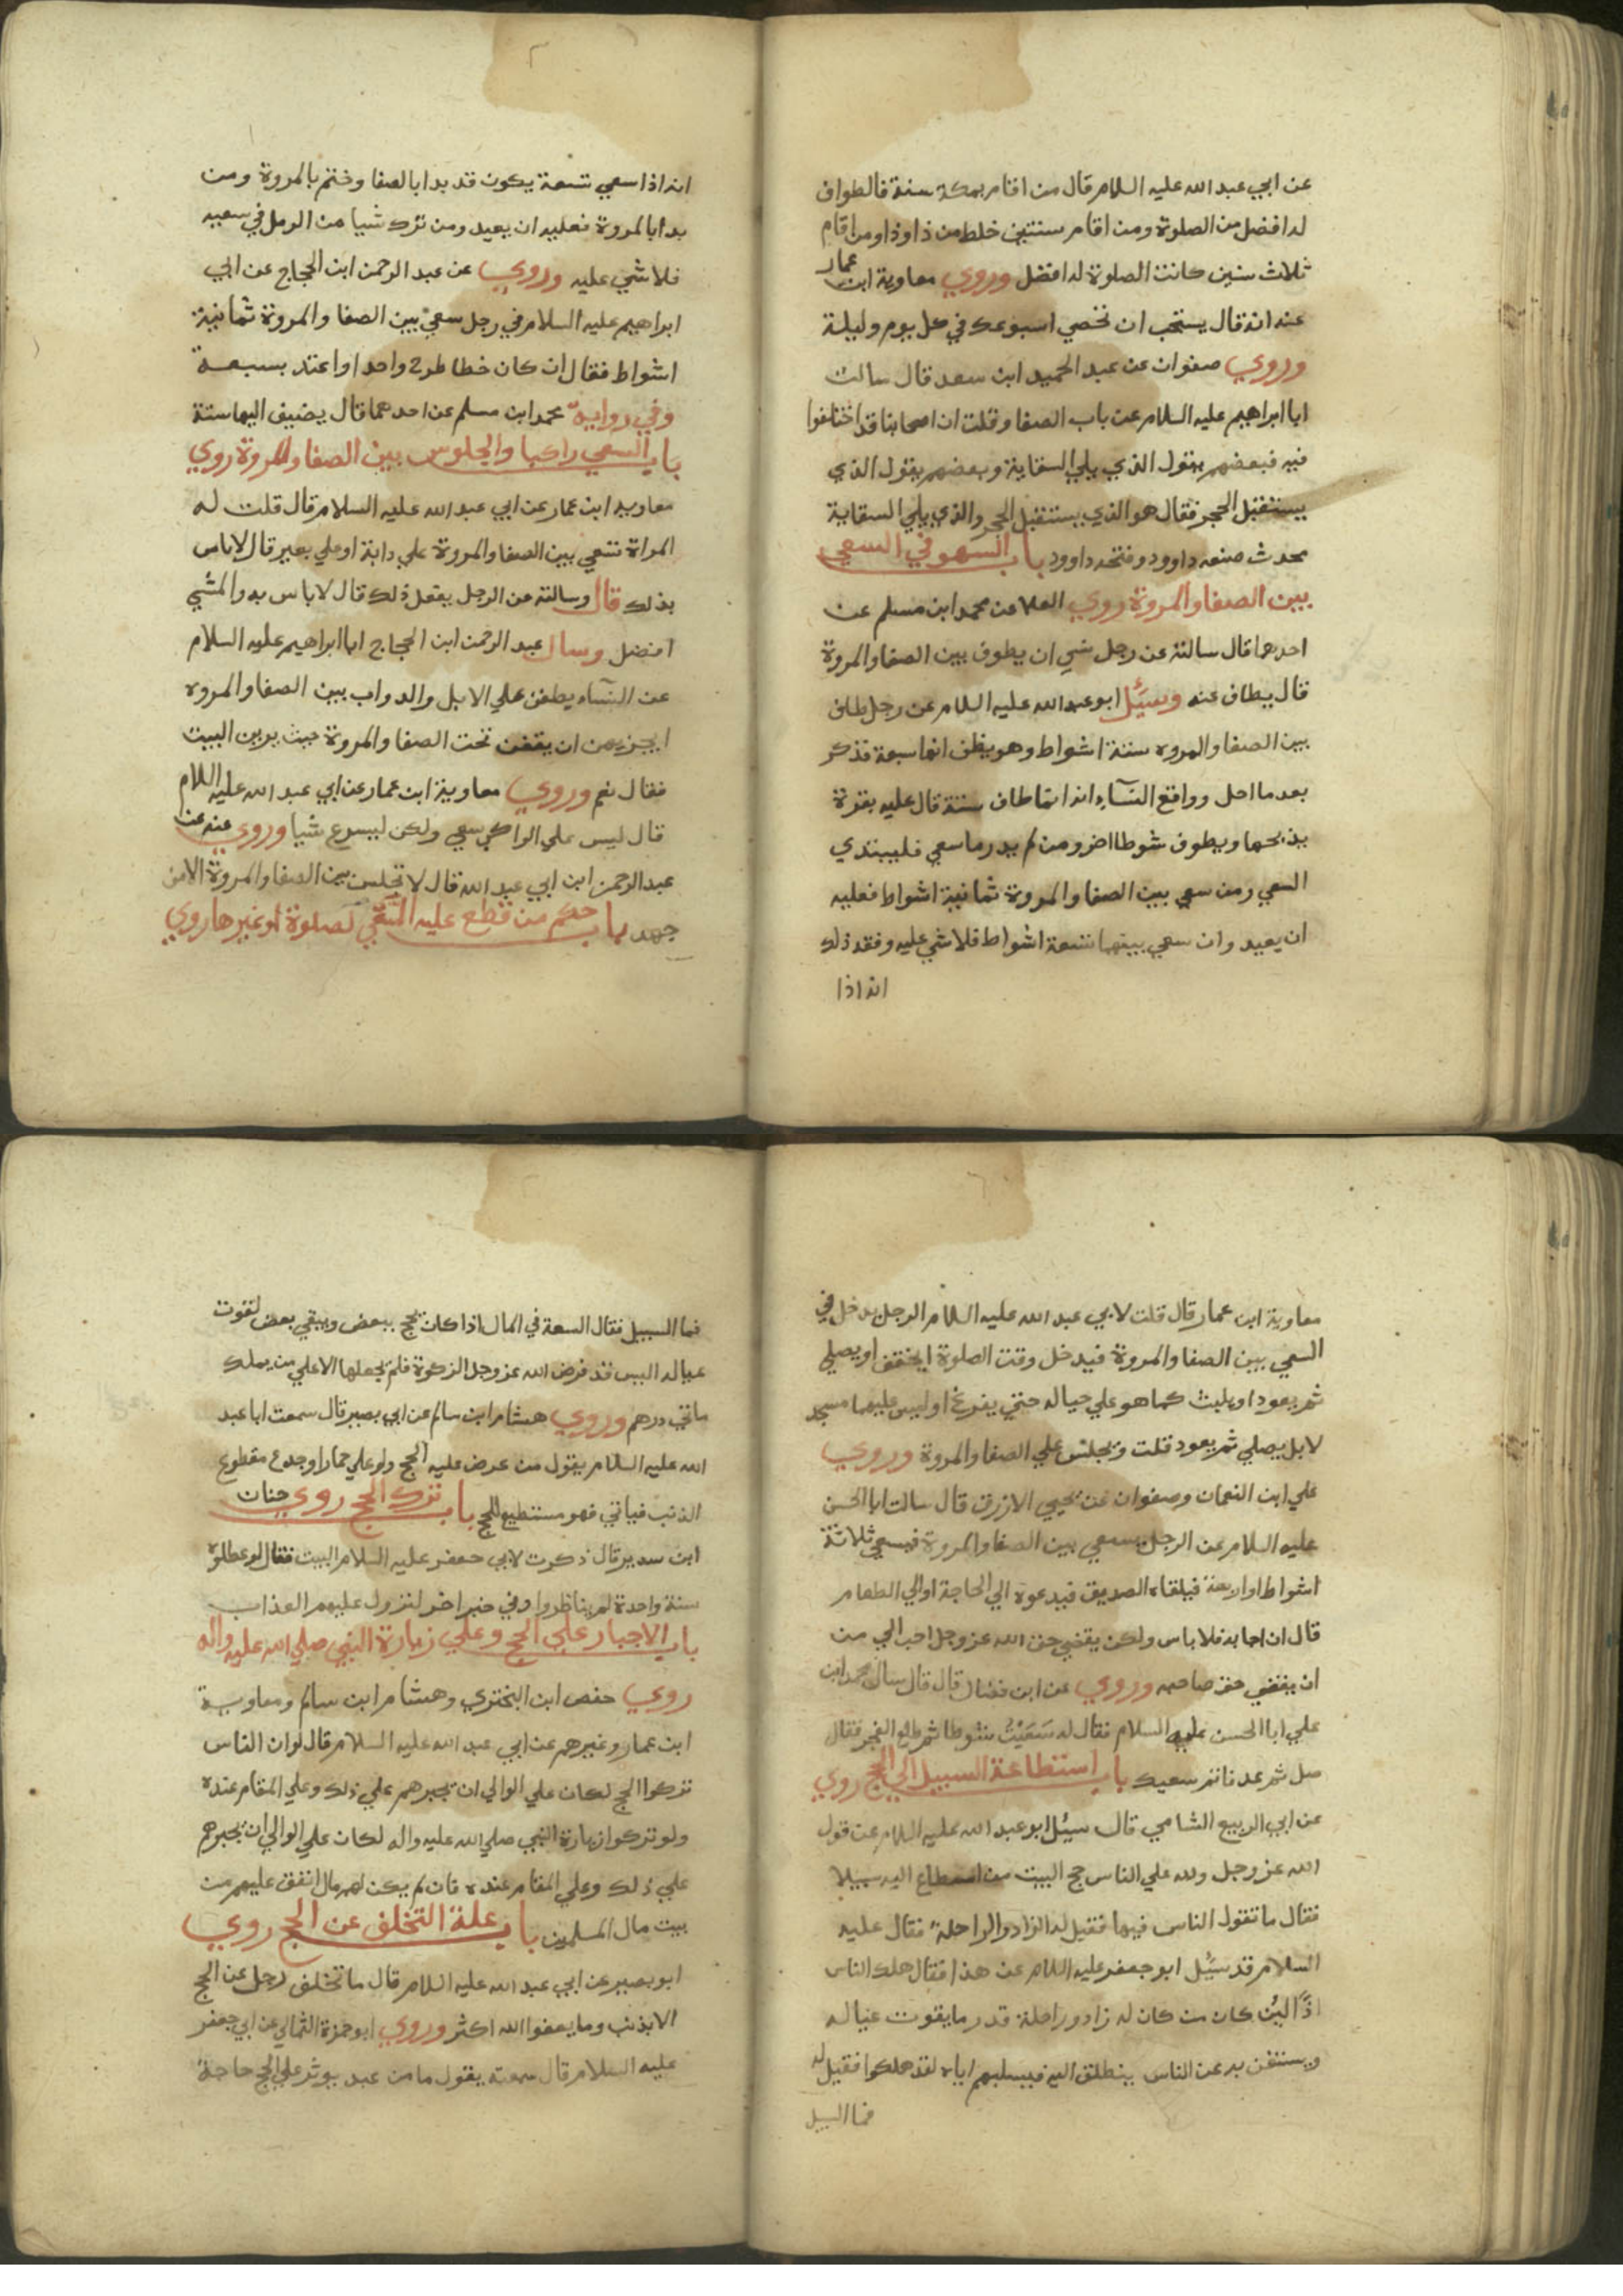 عن ابي عبد الله عليه السلام قال من اقام بمكة سنة فالطواف
له افضل من الصلوة ومن اقام سنتين خلط من ذا وذا ومن اقام
ثلاث سنين كانت الصلوة له افضل وروي معاوية ابن عمار
عنه انه قال يستحب ان تحصي اسبوعك في كل يوم وليلة
وروي صفوان عن عبد الحميد ابن سعد قال سالت
ابا ابراهيم عليه السلام عن باب الصفا وقلت ان اصحابنا قد اختلفوا
فيه فبعضهم يقول الذي يلي السقاية وبعضهم يقول الذي
يستقبل الحجر فقال هو الذي يستقبل الحجر والذي يلي السقاية
محدث صنعه داوود وفتحه داوود باب السهو في السعي
بين الصفا والمروة روي العلا عن محمد ابن مسلم عن
احدهما قال سالته عن رجل نسي ان يطوف بين الصفا والمروة
قال يطاف عنه وسئل ابو عبد الله عليه السلام عن رجل طاف
بين الصفا والمروه ستة اشواط وهو يظن انها سبعة فذكر
بعد ما احل وواقع النساء انه انما طاف ستة قال عليه بقرة
يذبحها ويطوف شوطا اخر ومن لم يدر ما سعي فليبتدي
السعي ومن سعي بين الصفا والمروة ثمانية اشواط فعليه
ان يعيد وان سعي بينهما تسعة اشواط فلا شي عليه وفقه ذلك
انه اذا
انه اذا سعي تسعة يكون قد بدا بالصفا وختم بالمروة ومن
بدا بالمروة فعليه ان يعيد ومن ترك شيا من الرمل في سعيه
فلا شي عليه وروي عن عبد الرحمن ابن الحجاج عن ابي
ابراهيم عليه السلام في رجل سعي بين الصفا والمروة ثمانية
اشواط فقال ان كان خطا طرح واحدا واعتد بسبعة
وفي رواية محمد ابن مسلم عن احدهما قال يضيف اليها ستة
باب السعي راكبا والجلوس بين الصفا والمروة روي
معاويه ابن عمار عن ابي عبد الله عليه السلام قال قلت له
المراة تسعي بين الصفا والمروة علي دابة او علي بعير قال لا باس
بذلك قال وسالته عن الرجل يفعل ذلك قال لا باس به والمشي
افضل وسال عبد الرحمن ابن الحجاج ابا ابراهيم عليه السلام
عن النساء يطفن علي الابل والدواب بين الصفا والمروه
ايجزيهن ان يقفن تحت الصفا والمروة حيث يرين البيت
فقال نعم وروي معاوية ابن عمار عن ابي عبد الله عليه السلام
قال ليس علي الراكب سعي ولكن ليسرع شيا وروي عنه عن
عبد الرحمن ابن ابي عبد الله قال لا تجلس بين الصفا والمروة الا من
جهد باب حكم من قطع عليه السعي لصلوة او غيرها روي
معاوية ابن عمار قال قلت لابي عبد الله عليه السلام الرجل يدخل في
السعي بين الصفا والمروة فيدخل وقت الصلوة ايخفف او يصلي
ثم يعود او يلبث كما هو علي حاله حتي يفرغ اوليس عليهما مسجد
لا بل يصلي ثم يعود قلت ويجلس علي الصفا والمروة وروي
علي ابن النعمان وصفوان عن يحيي الازرق قال سالت ابا الحسن
عليه السلام عن الرجل يسعي بين الصفا والمروة فيسعي ثلاثة
اشواط او اربعة فيلقاه الصديق فيدعوه الي الحاجة او الي الطعام
قال ان اجابه فلا باس ولكن يقضي حق الله عز وجل احب الي من
ان يقضي حق صاحبه وروي عن ابن فضال قال قال سال محمد ابن
علي ابا الحسن عليه السلام فقال له سعيت شوطا ثم طلع الفجر فقال
صل ثم عد فاتم سعيك باب استطاعة السبيل الي الحج روي
عن ابي الربيع الشامي قال سئل ابو عبد الله عليه السلام عن قول
الله عز وجل ولله علي الناس حج البيت من استطاع اليه سبيلا
فقال ما تقول الناس فيها فقيل له الزاد والراحلة فقال عليه
السلام قد سئل ابو جعفر عليه السلام عن هذا فقال هلك الناس
اذا لئن كان من كان له زاد وراحلة قدر ما يقوت عياله
ويستغن به عن الناس ينطلق اليه فيسلبهم اياه لقد هلكوا فقيل له
فما السبيل
فما السبيل فقال السعة في المال اذا كان يحج ببعض ويبقي بعض لقوت
عياله اليس قد فرض الله عز وجل الزكوة فلم يجعلها الا علي من يملك
ماتي درهم وروي هشام ابن سالم عن ابي بصير قال سمعت ابا عبد
الله عليه السلام يقول من عرض عليه الحج ولو علي حمار اجدع مقطوع
الذنب فياتي فهو مستطيع للحج باب ترك الحج روي حنان
ابن سدير قال ذكرت لابي جعفر عليه السلام البيت فقال لو عطلوه
سنة واحدة لم يناظروا وفي خبر اخر لنزول عليهم العذاب
باب الاجبار علي الحج وعلي زيارة النبي صلي الله عليه واله
روي حفص ابن البختري وهشام ابن سالم ومعاوية
ابن عمار وغيرهم عن ابي عبد الله عليه السلام قال لو ان الناس
تركوا الحج لكان علي الوالي ان يجبرهم علي ذلك وعلي المقام عنده
ولو تركوا زيارة النبي صلي الله عليه واله لكان علي الوالي ان يجبرهم
علي ذلك وعلي المقام عنده فان لم يكن لهم مال انفق عليهم من
بيت مال المسلمين باب علة التخلف عن الحج روي
ابو بصير عن ابي عبد الله عليه السلام قال ما تخلف رجل عن الحج
الا بذنب وما يعفوا الله اكثر وروي ابو حمزة الثمالي عن ابي جعفر
عليه السلام قال سمعته يقول ما من عبد يوثر علي الحج حاجة